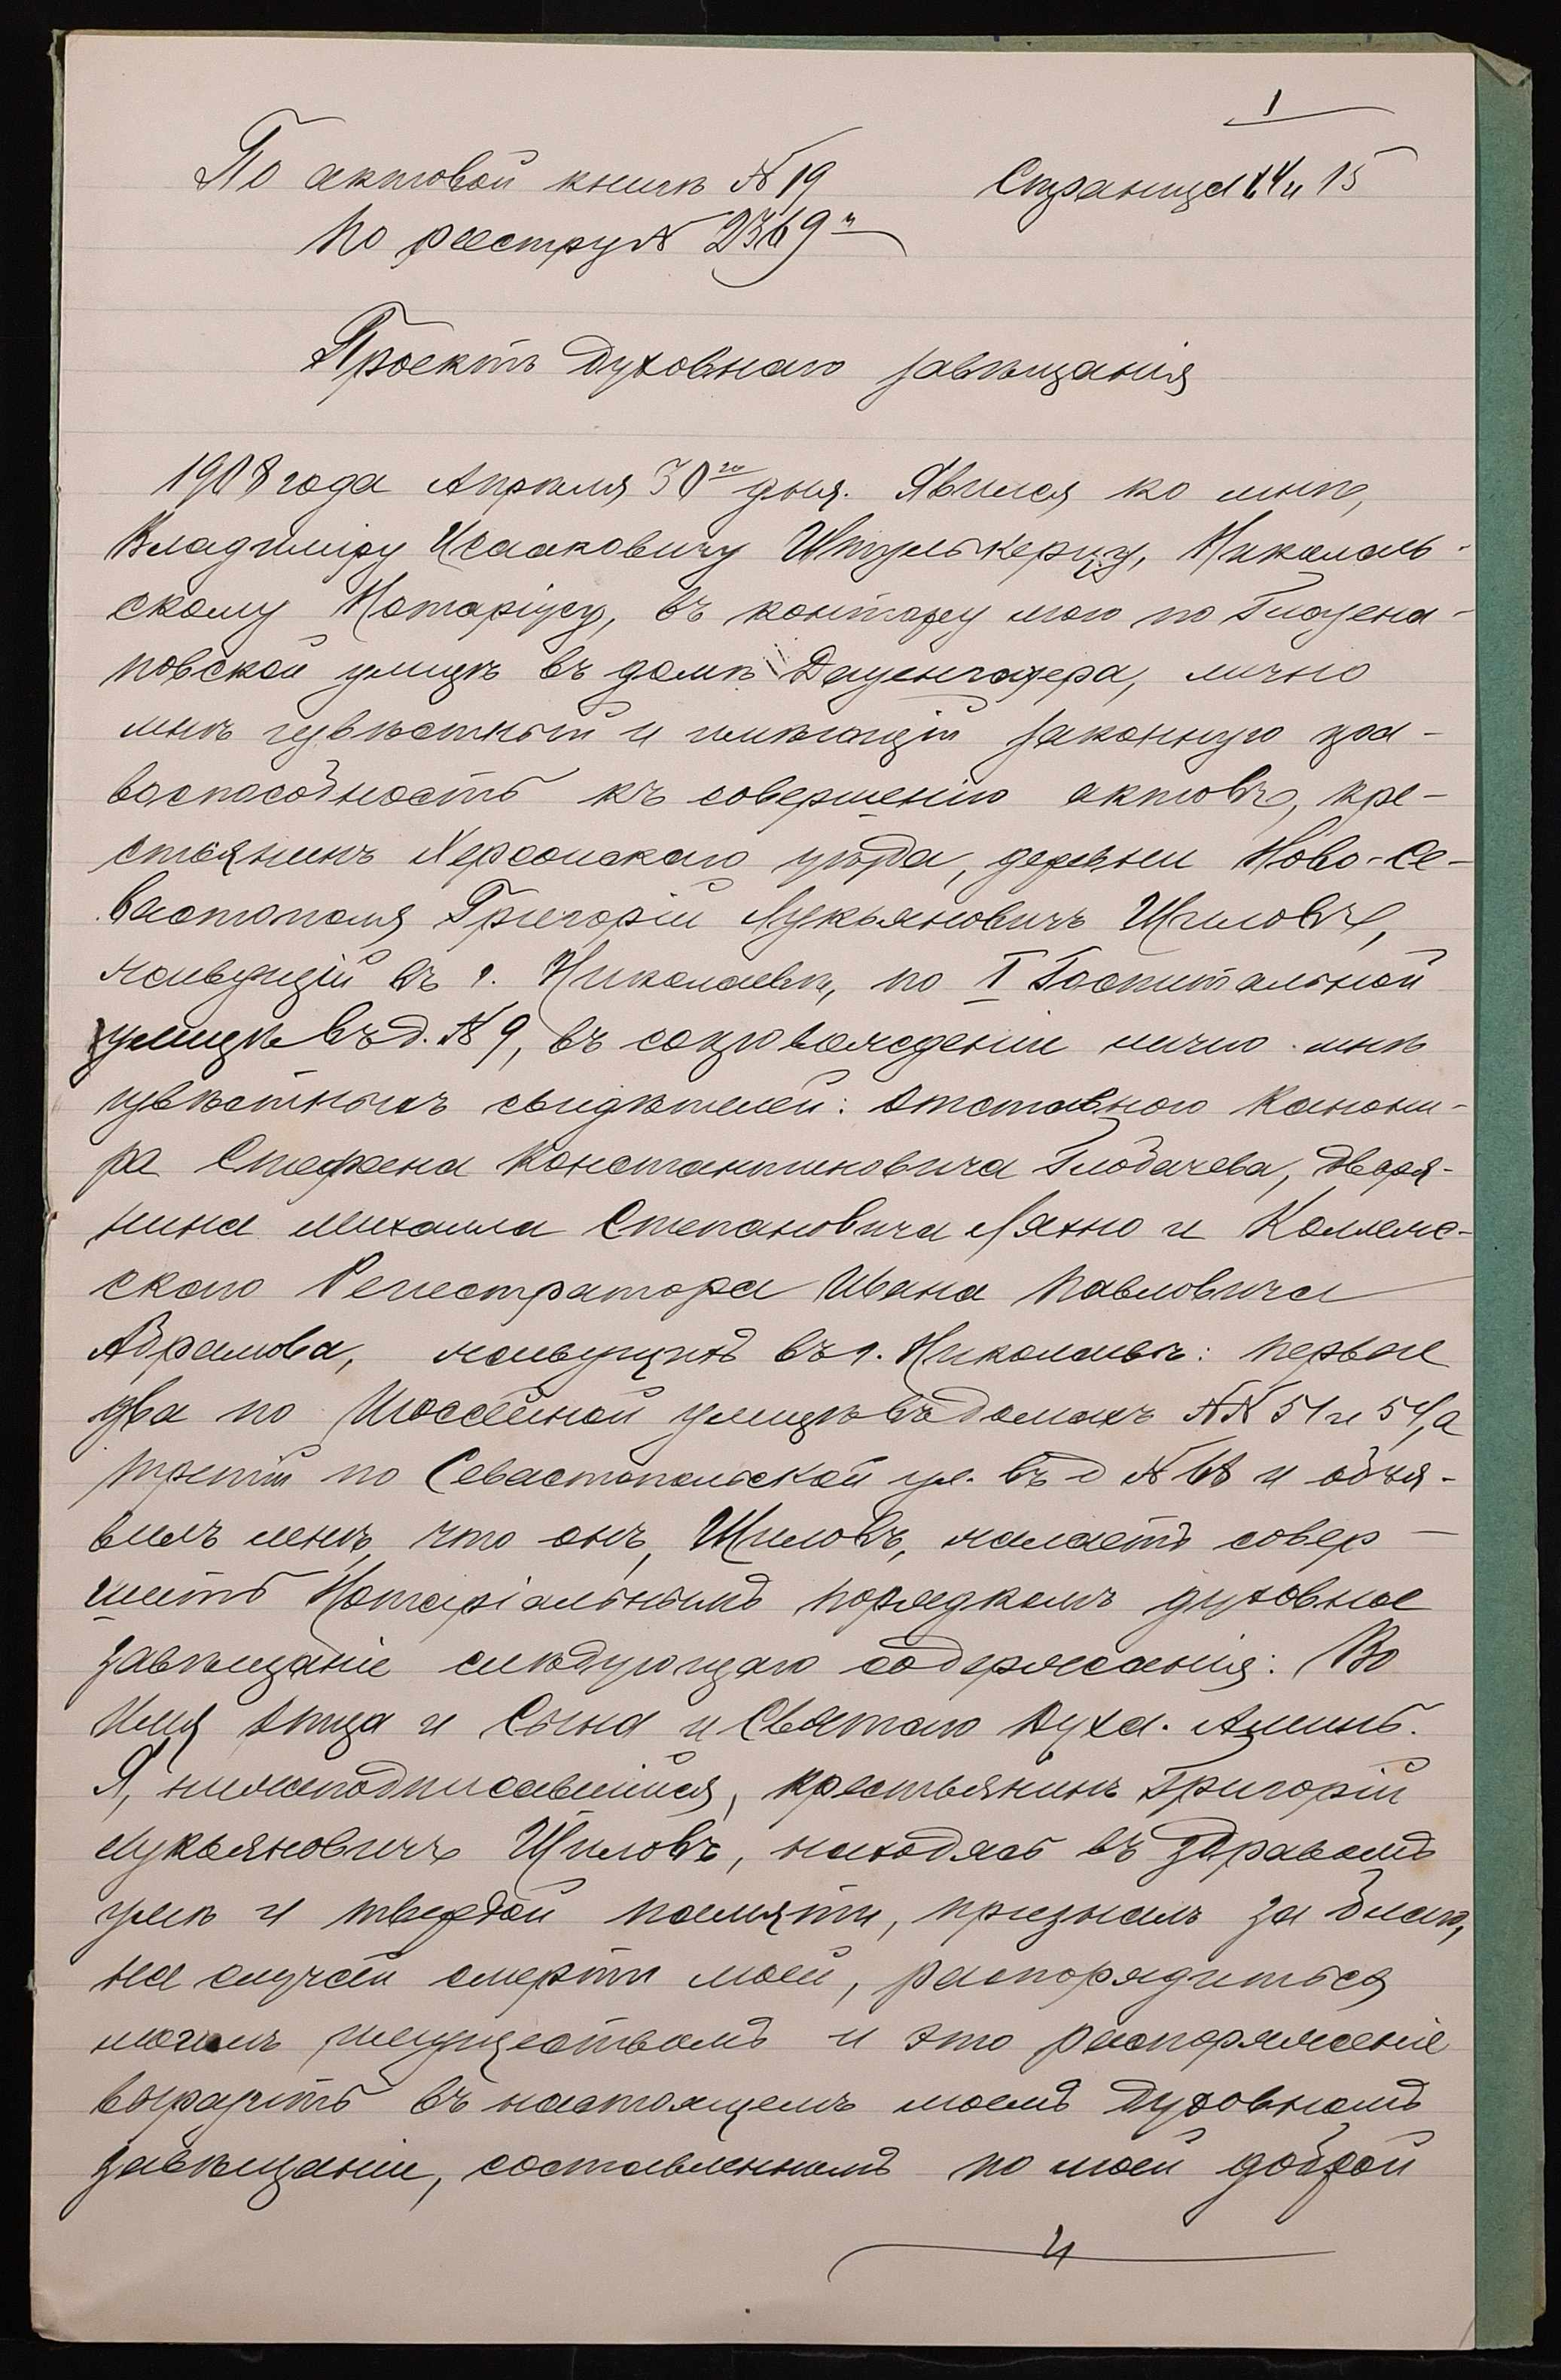 1
По актовой книгѣ № 19 Страница 14 и 15
по реестру № 2369
Проектъ духовнаго завѣщанія
1908 года Апрѣля 30го дня. Явился ко мнѣ,
Владиміру Исааковичу Штулькерцу, Николаев-
скому Нотаріусу, въ контору мою по Глазена-
повской улицѣ въ домѣ лично
мнѣ извѣстный и имѣющій законную пра-
воспособность къ совершенію актовъ, кре-
стьянинъ Херсонскаго уѣзда, деревни Ново-Се-
вастополя Григорій Лукьяновичъ Шиловъ,
живущій въ г. Николаевѣ, по I Госпитальной
улицѣ въ д. № 9, въ сопровожденіи лично мнѣ
извѣстныхъ свидѣтелей: отставного канони-
ра Стефана Константиновича Глобачева, дворя-
нина Михаила Степановича Лахно и Коллеж-
скаго Регистратора Ивана Павловича
Абрамова, живущихъ въ г. Николаевѣ: первые
два по Шоссейной улицѣ въ домахъ №№ 51 и 54, а
третій по Севастопольской ул. въ д № и объя-
вилъ мнѣ, что онъ, Шиловъ, желаетъ совер-
шить Нотаріальнымъ порядкомъ духовное
завѣщаніе слѣдующаго содержанія: Во
имя Отца и Сына и Святаго Духа. Аминь.
Я, нижеподписавшійся, крестьянинъ Григорій
Лукьяновичъ Шиловъ, находясь въ здравомъ
умѣ и твердой памяти, призналъ за благо,
на случай смерти моей, распорядиться
моимъ имуществомъ и это распоряженіе
выразить въ настоящемъ моемъ духовномъ
завѣщаніи, составленномъ по моей доброй
и